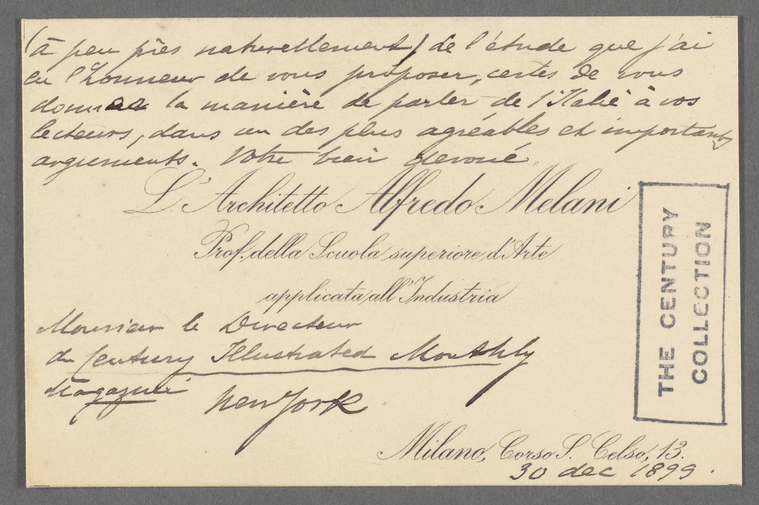 (à peu près naturellement) de l'étude que j'ai
eu l'honneur de vous proposer, certes de vous
donner la manière de parler de l'Italie à vos
lecteurs, dans un des plus agréables et importants
arguments. Votre bien devoué
L'Architetto Alfredo Melani
Prof. della Scuola superiore d'Arte
applicata all'Industria
Monsieur le Directeur
du Century Illustrated Monthly
Magazine New York
Milano, Corso S. Celso, 13.
30 dec 1899.
THE CENTURY
COLLECTION